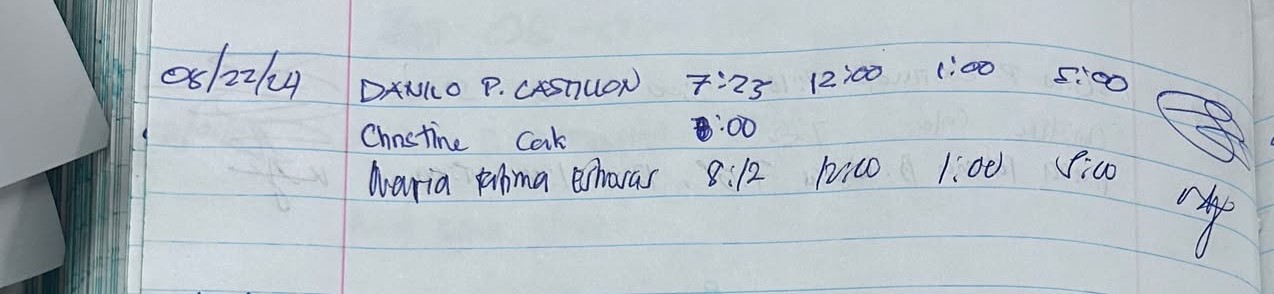 08/22/24 DANILO P. CASTILLON 7:23 12:00 1:00 5:00
Christine Cak 8:00
Maria Fatima 8:12 12:00 1:00 5:00